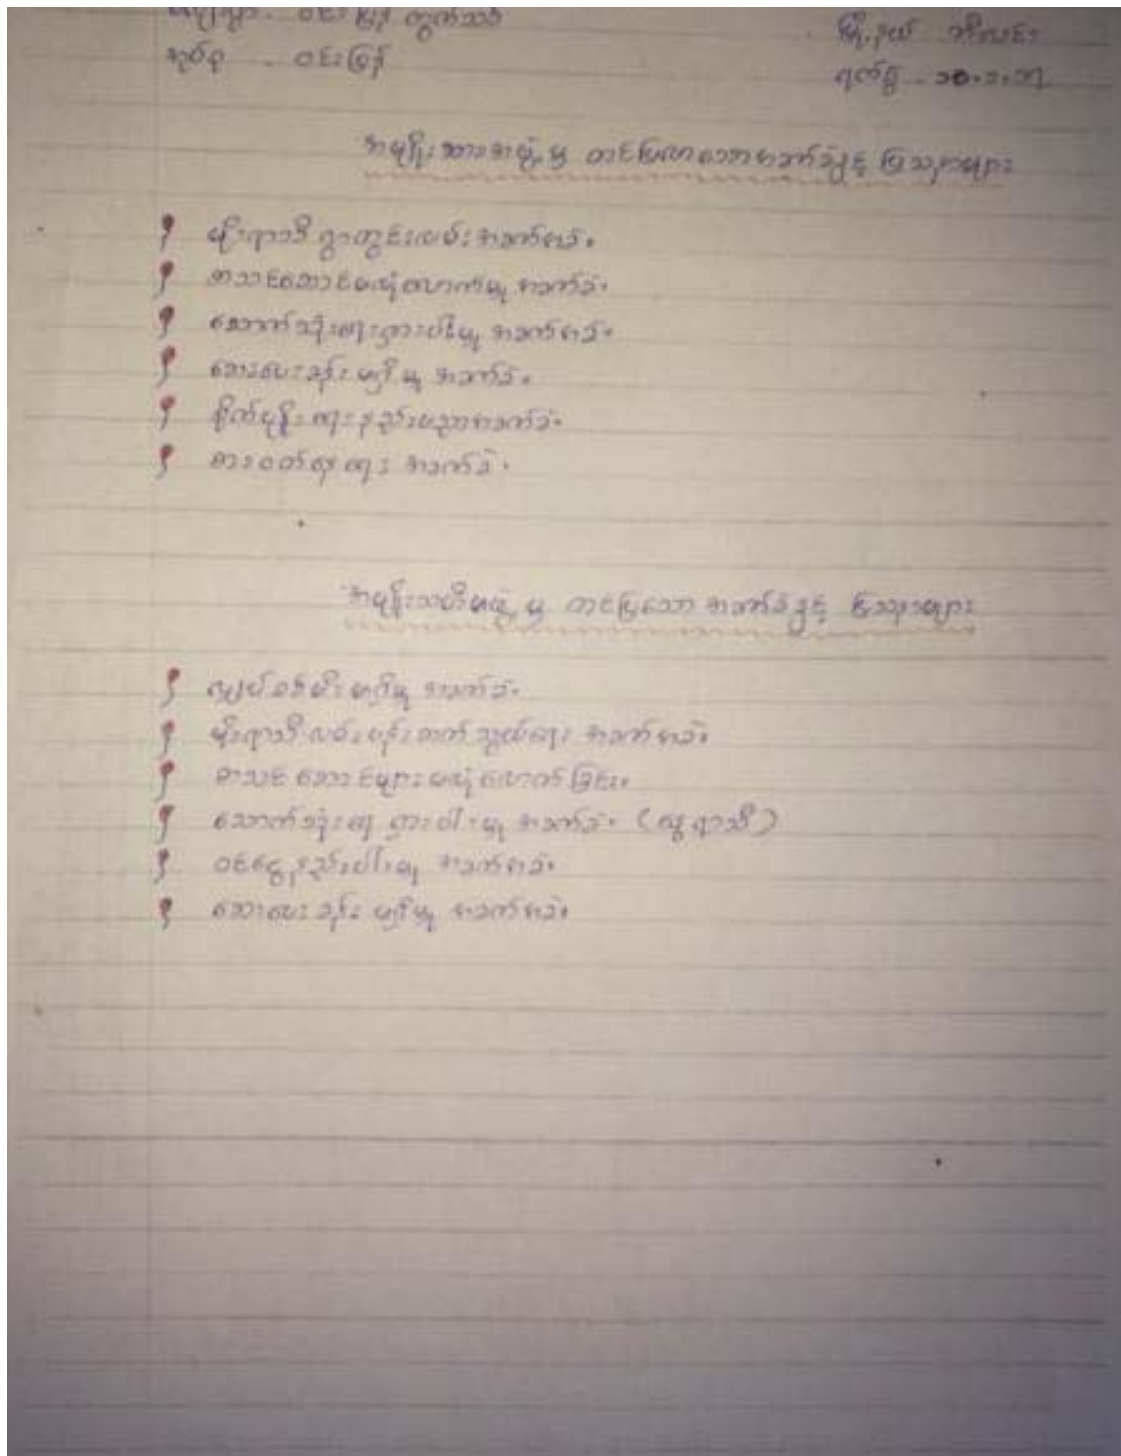 ကျေးရွာ - ဝင်းမြိန် ကွက်သစ်
မြို့နယ် ဘီးလင်း
အုပ်စု - ဝင်းမြိန်
ရက်စွဲ -
အမျိုးသားအဖွဲ့မှ တင်ပြလာသောအခက်ခဲနှင့် ပြဿနာများ
မိုးရာသီ ရွာတွင်းလမ်း အခက်အခဲ။
စာသင်ဆောင်မလုံလောက်မှု အခက်ခဲ။
သောက်သုံးရေရှားပါးမှု အခက်အခဲ။
ဆေးပေးခန်း မရှိမှု အခက်ခဲ။
စိုက်ပျိုးရေးနည်းပညာအခက်ခဲ။
စားဝတ်နေရေး အခက်ခဲ။
အမျိုးသမီးအဖွဲ့မှ တင်ပြသော အခက်ခဲနှင့် ပြဿနာများ
လျှပ်စစ်မီး မရှိမှု အခက်ခဲ။
မိုးရာသီ လမ်းပန်းဆက်သွယ်ရေး အခက်အခဲ။
စာသင်ဆောင်များ မလုံလောက်ခြင်း။
သောက်သုံးရေ ရှားပါးမှု အခက်ခဲ။ (နွေရာသီ)
ဝင်ငွေနည်းပါးမှု အခက်အခဲ။
ဆေးပေးခန်း မရှိမှု အခက်အခဲ။